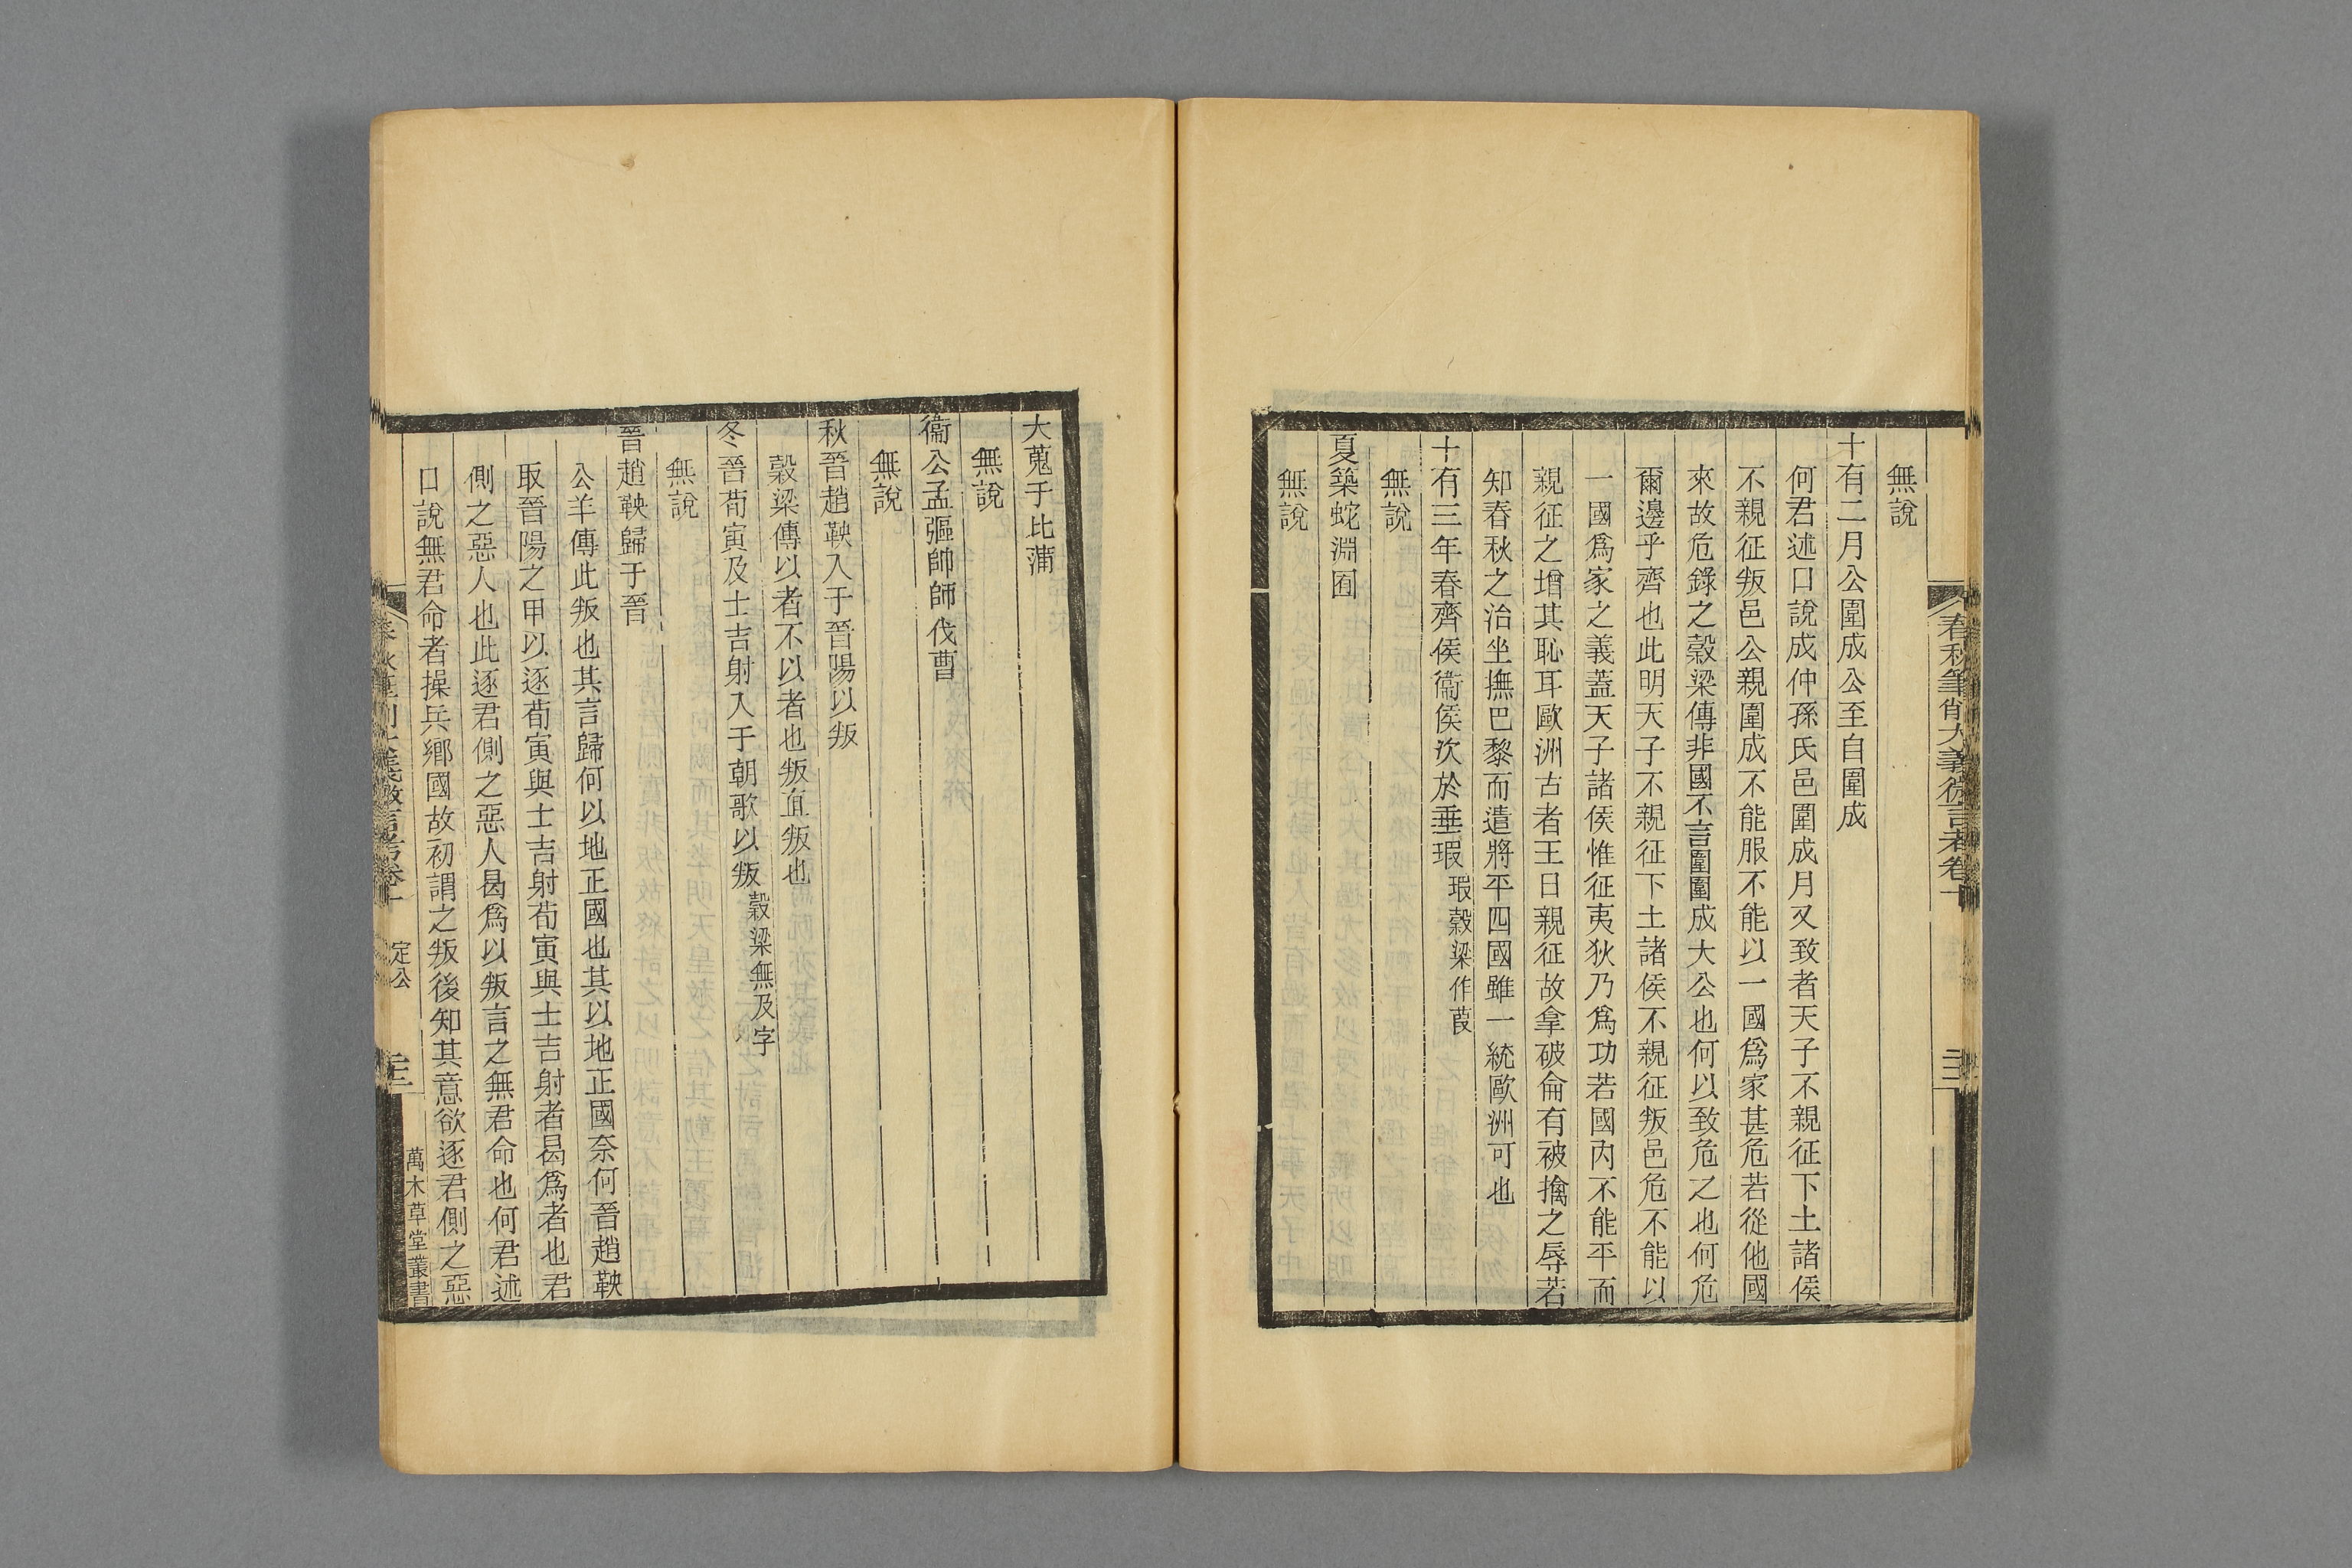 無說
十有二月公圍成公至自圍成
何君述口說成仲孫氏邑圍成月又致者天子不親征下土諸侯
不親征叛邑公親圍成不能服不能以一國爲家甚危若從他國
來故危錄之穀梁傳非國不言圍圍成大公也何以致危之也何危
爾邊乎齊也此明天子不親征下土諸侯不親征叛邑危不能以
一國爲家之義蓋天子諸侯惟征夷狄乃爲功若國內不能平而
親征之增其恥耳歐洲古者王日親征故拿破侖有被擒之辱若
知春秋之治坐撫巴黎而遣將平四國雖一統歐洲可也
十有三年春齊侯衞侯次於垂瑕瑕穀梁作葭
無說
夏築蛇淵囿
無說
春秋筆削大義微言考卷十
大蒐于比蒲
無說
衞公孟彄帥師伐曹
無說
秋晉趙鞅入于晉陽以叛
穀梁傳以者不以者也叛直叛也
冬晉荀寅及士吉射入于朝歌以叛穀梁無及字
無說
晉趙鞅歸于晉
公羊傳此叛也其言歸何以地正國也其以地正國奈何晉趙鞅
取晉陽之甲以逐荀寅與士吉射荀寅與士吉射者曷爲者也君
側之惡人也此逐君側之惡人曷爲以叛言之無君命也何君述
口說無君命者操兵鄉國故初謂之叛後知其意欲逐君側之惡
定公
萬木草堂叢書